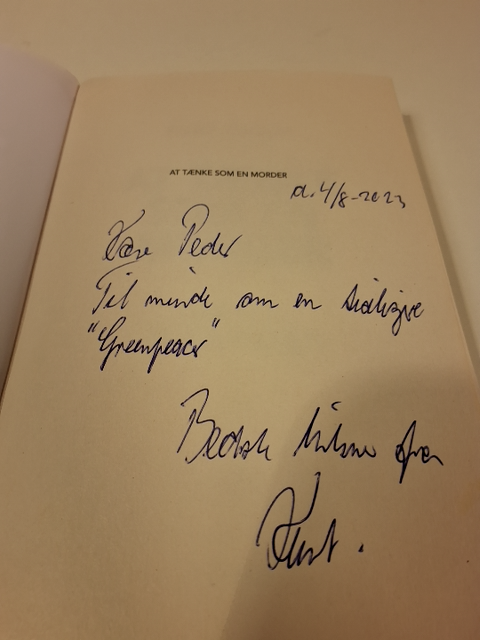 AT TÆNKE SOM EN MORDER
d. 4/8-2023
Kære Peder
Til minde om en
"Greenpeacer"
Bedste hilsner fra